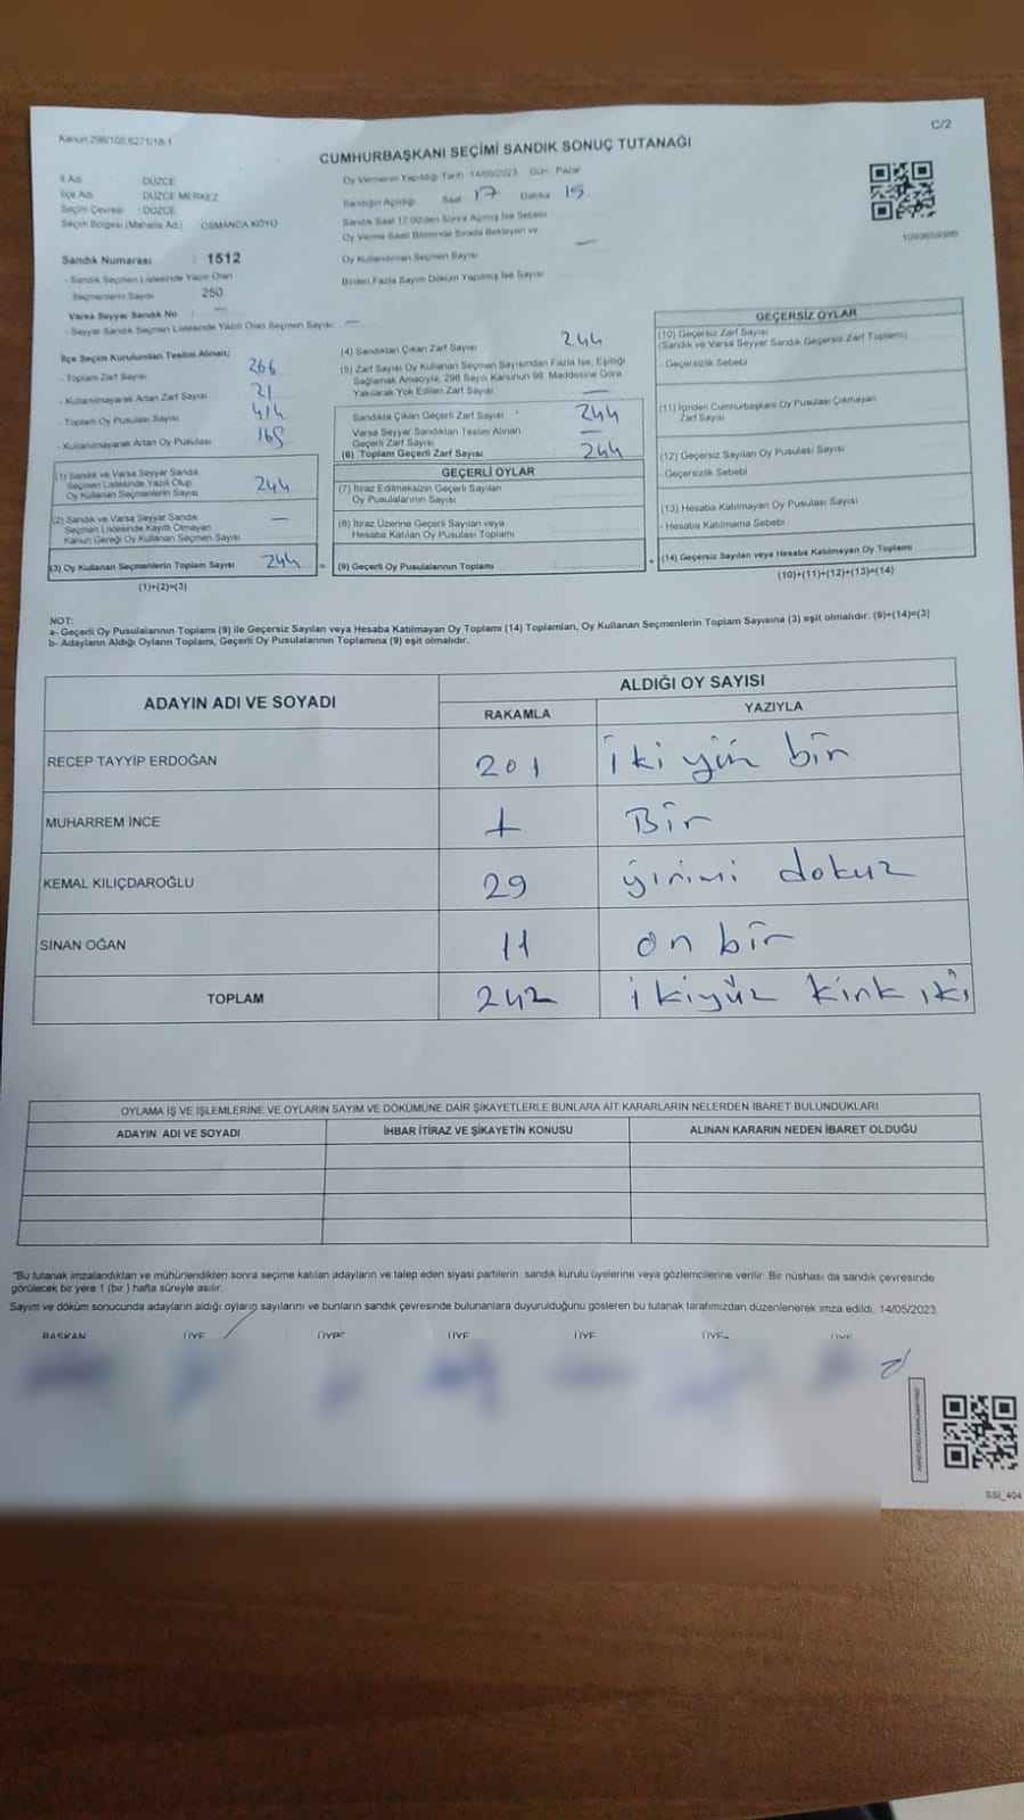 C/2
CUMHURBAŞKANI SEÇİMİ SANDIK SONUÇ TUTANAĞI
İl Adı : DÜZCE
İlçe Adı : DÜZCE MERKEZ
Seçim Çevresi : DÜZCE
Seçim Bölgesi (Mahalle Adı) : OSMANCA KÖYÜ
Oy Vermenin Yapıldığı Tarih 14/05/2023 Gün Pazar
Sandığın Açıldığı Saat 17 Dakika 15
Sandık Saat 17:00'den Sonra Açılmış İse Sebebi
Oy Verme Saati Bitiminde Sırada Bekleyen ve
Oy Kullandırılan Seçmen Sayısı —
Birden Fazla Sayım Döküm Yapılmış İse Sayısı
Sandık Numarası : 1512
- Sandık Seçmen Listesinde Yazılı Olan
Seçmenlerin Sayısı : 250
Varsa Seyyar Sandık No : —
- Seyyar Sandık Seçmen Listesinde Yazılı Olan Seçmen Sayısı —
İlçe Seçim Kurulundan Teslim Alınan;
- Toplam Zarf Sayısı 266
- Kullanılmayarak Artan Zarf Sayısı 21
- Toplam Oy Pusulası Sayısı 414
- Kullanılmayarak Artan Oy Pusulası 165
(1) Sandık ve Varsa Seyyar Sandık
Seçmen Listesinde Yazılı Olup
Oy Kullanan Seçmenlerin Sayısı 244
(2) Sandık ve Varsa Seyyar Sandık
Seçmen Listesinde Kayıtlı Olmayan
Kanun Gereği Oy Kullanan Seçmen Sayısı —
(3) Oy Kullanan Seçmenlerin Toplam Sayısı 244
(1)+(2)=(3)
(4) Sandıktan Çıkan Zarf Sayısı 244
(5) Zarf Sayısı Oy Kullanan Seçmen Sayısından Fazla İse, Eşitliği
Sağlamak Amacıyla, 298 Sayılı Kanunun 98. Maddesine Göre
Yakılarak Yok Edilen Zarf Sayısı —
Sandıkta Çıkan Geçerli Zarf Sayısı 244
Varsa Seyyar Sandıktan Teslim Alınan
Geçerli Zarf Sayısı —
(6) Toplam Geçerli Zarf Sayısı 244
GEÇERLİ OYLAR
(7) İtiraz Edilmeksizin Geçerli Sayılan
Oy Pusulalarının Sayısı
(8) İtiraz Üzerine Geçerli Sayılan veya
Hesaba Katılan Oy Pusulası Toplamı
= (9) Geçerli Oy Pusulalarının Toplamı
GEÇERSİZ OYLAR
(10) Geçersiz Zarf Sayısı
(Sandık ve Varsa Seyyar Sandık Geçersiz Zarf Toplamı)
- Geçersizlik Sebebi
(11) İçinden Cumhurbaşkanı Oy Pusulası Çıkmayan
Zarf Sayısı
(12) Geçersiz Sayılan Oy Pusulası Sayısı
Geçersizlik Sebebi
(13) Hesaba Katılmayan Oy Pusulası Sayısı
- Hesaba Katılmama Sebebi
+ (14) Geçersiz Sayılan veya Hesaba Katılmayan Oy Toplamı
(10)+(11)+(12)+(13)=(14)
NOT:
a- Geçerli Oy Pusulalarının Toplamı (9) ile Geçersiz Sayılan veya Hesaba Katılmayan Oy Toplamı (14) Toplamları, Oy Kullanan Seçmenlerin Toplam Sayısına (3) eşit olmalıdır. (9)+(14)=(3)
b- Adayların Aldığı Oyların Toplamı, Geçerli Oy Pusulalarının Toplamına (9) eşit olmalıdır.
ADAYIN ADI VE SOYADI
ALDIĞI OY SAYISI
RAKAMLA YAZIYLA
RECEP TAYYİP ERDOĞAN 201 İki yüz bir
MUHARREM İNCE 1 Bir
KEMAL KILIÇDAROĞLU 29 yirimi dokuz
SİNAN OĞAN 11 on bir
TOPLAM 242 ikiyüz kırk iki
OYLAMA İŞ VE İŞLEMLERİNE VE OYLARIN SAYIM VE DÖKÜMÜNE DAİR ŞİKAYETLERLE BUNLARA AİT KARARLARIN NELERDEN İBARET BULUNDUKLARI
ADAYIN ADI VE SOYADI İHBAR İTİRAZ VE ŞİKAYETİN KONUSU ALINAN KARARIN NEDEN İBARET OLDUĞU
"Bu tutanak imzalandıktan ve mühürlendikten sonra seçime katılan adayların ve talep eden siyasi partilerin sandık kurulu üyelerine veya gözlemcilerine verilir. Bir nüshası da sandık çevresinde
görülecek bir yere 1 (bir) hafta süreyle asılır.
Sayım ve döküm sonucunda adayların aldığı oyların sayılarını ve bunların sandık çevresinde bulunanlara duyurulduğunu gösteren bu tutanak tarafımızdan düzenlenerek imza edildi. 14/05/2023
BAŞKAN ÜYE ÜYE ÜYE ÜYE ÜYE ÜYE
SSİ_404